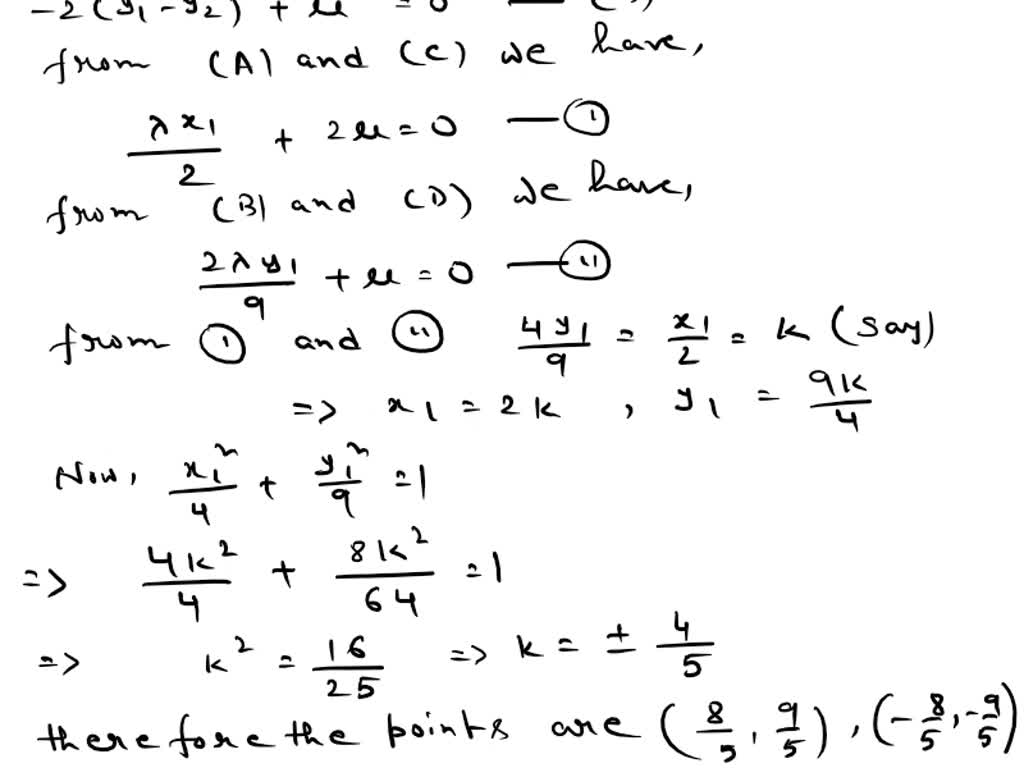 -2(y₁-y₂) + μ = 0
from (A) and (C) we have,
λx₁/2 + 2μ = 0 — (i)
from (B) and (D) we have,
2λy₁/9 + μ = 0 — (ii)
from (i) and (ii) 4y₁/9 = x₁/2 = k (say)
=> x₁ = 2k , y₁ = 9k/4
Now, x₁²/4 + y₁²/9 = 1
=> 4k²/4 + 8k²/64 = 1
=> k² = 16/25 => k = ± 4/5
therefore the points are (8/5, 9/5), (-8/5, -9/5)